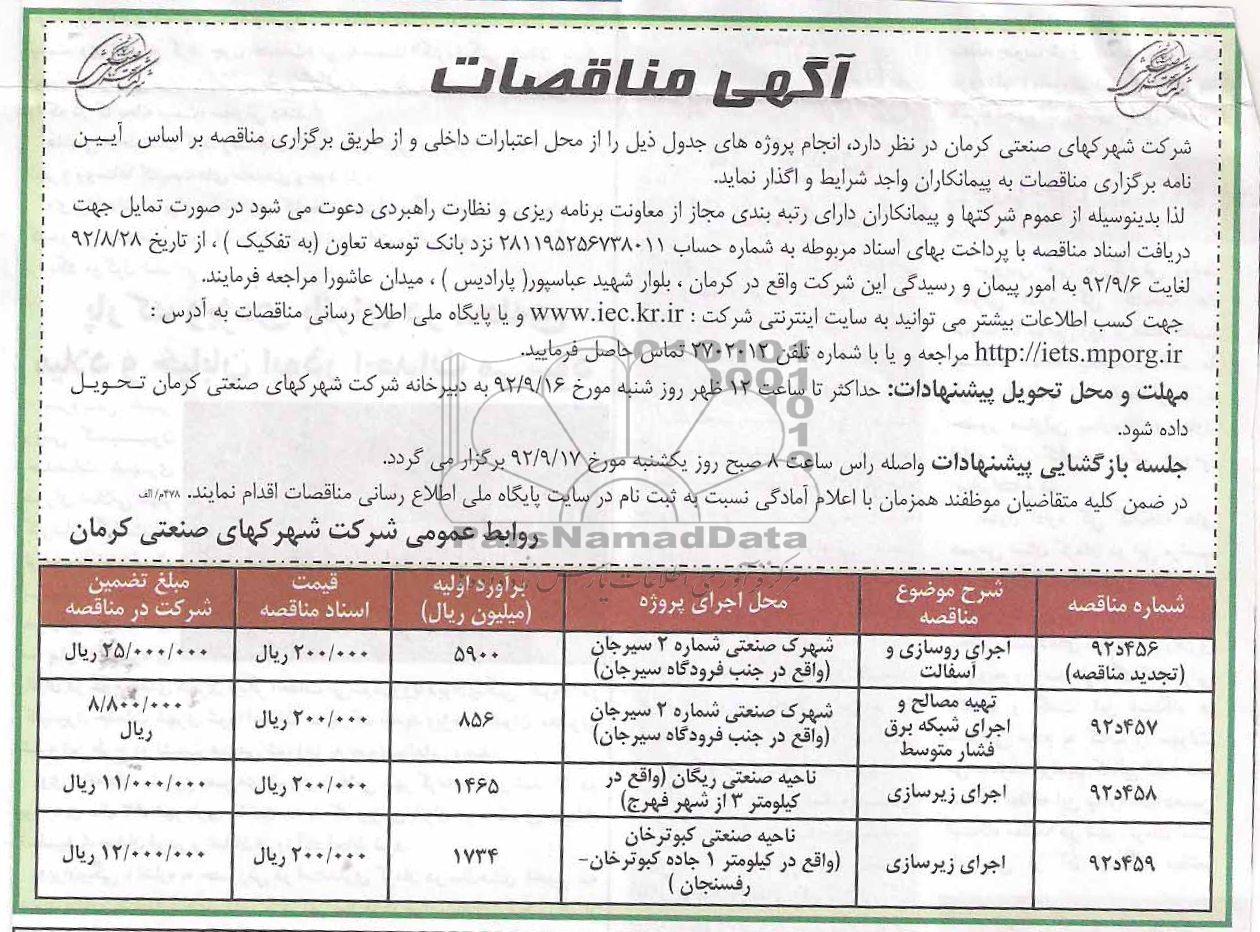 آگهی مناقصات
شرکت شهرکهای صنعتی کرمان در نظر دارد، انجام پروژه های جدول ذیل را از محل اعتبارات داخلی و از طریق برگزاری مناقصه بر اساس آیین
نامه برگزاری مناقصات به پیمانکاران واجد شرایط و اگذار نماید.
لذا بدینوسیله از عموم شرکتها و پیمانکاران دارای رتبه بندی مجاز از معاونت برنامه ریزی و نظارت راهبردی دعوت می شود در صورت تمایل جهت
دریافت اسناد مناقصه با پرداخت بهای اسناد مربوطه به شماره حساب ۲۸۱۱۹۵۲۵۶۷۳۸۰۱۱ نزد بانک توسعه تعاون (به تفکیک ) ، از تاریخ ۹۲/۸/۲۸
لغایت ۹۲/۹/۶ به امور پیمان و رسیدگی این شرکت واقع در کرمان ، بلوار شهید عباسپور( پارادیس ) ، میدان عاشورا مراجعه فرمایند.
جهت کسب اطلاعات بیشتر می توانید به سایت اینترنتی شرکت : www.iec.kr.ir و یا پایگاه ملی اطلاع رسانی مناقصات به آدرس :
http://iets.mporg.ir مراجعه و یا با شماره تلفن ۲۷۰۲۰۱۲ تماس حاصل فرمایید.
مهلت و محل تحویل پیشنهادات: حداکثر تا ساعت ۱۲ ظهر روز شنبه مورخ ۹۲/۹/۱۶ به دبیرخانه شرکت شهرکهای صنعتی کرمان تحویل
داده شود.
جلسه بازگشایی پیشنهادات واصله راس ساعت ۸ صبح روز یکشنبه مورخ ۹۲/۹/۱۷ برگزار می گردد.
در ضمن کلیه متقاضیان موظفند همزمان با اعلام آمادگی نسبت به ثبت نام در سایت پایگاه ملی اطلاع رسانی مناقصات اقدام نمایند. ۴۷۸م/الف
روابط عمومی شرکت شهرکهای صنعتی کرمان
ParsNamadData
شماره مناقصه
شرح موضوع
مناقصه
محل اجرای پروژه
براورد اولیه
(میلیون ریال)
قیمت
اسناد مناقصه
مبلغ تضمین
شرکت در مناقصه
۹۲د۴۵۶
(تجدید مناقصه)
اجرای روسازی و
آسفالت
شهرک صنعتی شماره ۲ سیرجان
(واقع در جنب فرودگاه سیرجان)
۵۹۰۰
۲۰۰/۰۰۰ ریال
۲۵/۰۰۰/۰۰۰ ریال
۹۲د۴۵۷
تهیه مصالح و
اجرای شبکه برق
فشار متوسط
شهرک صنعتی شماره ۲ سیرجان
(واقع در جنب فرودگاه سیرجان)
۸۵۶
۲۰۰/۰۰۰ ریال
۸/۸۰۰/۰۰۰
ریال
۹۲د۴۵۸
اجرای زیرسازی
ناحیه صنعتی ریگان (واقع در
کیلومتر ۳ از شهر فهرج)
۱۴۶۵
۲۰۰/۰۰۰ ریال
۱۱/۰۰۰/۰۰۰ ریال
۹۲د۴۵۹
اجرای زیرسازی
ناحیه صنعتی کبوترخان
(واقع در کیلومتر ۱ جاده کبوترخان-
رفسنجان )
۱۷۳۴
۲۰۰/۰۰۰ ریال
۱۲/۰۰۰/۰۰۰ ریال